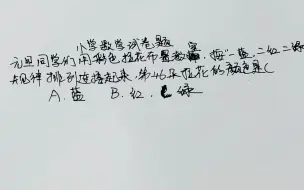 小学数学试卷题
元旦同学们用彩色拉花布置教室，按"一蓝，二红二绿
规律排列连接起来，第46朵拉花的颜色是(
A. 蓝 B. 红. C 绿